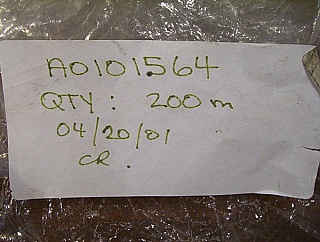 A0101564
QTY: 200 m
04/20/01
CR.